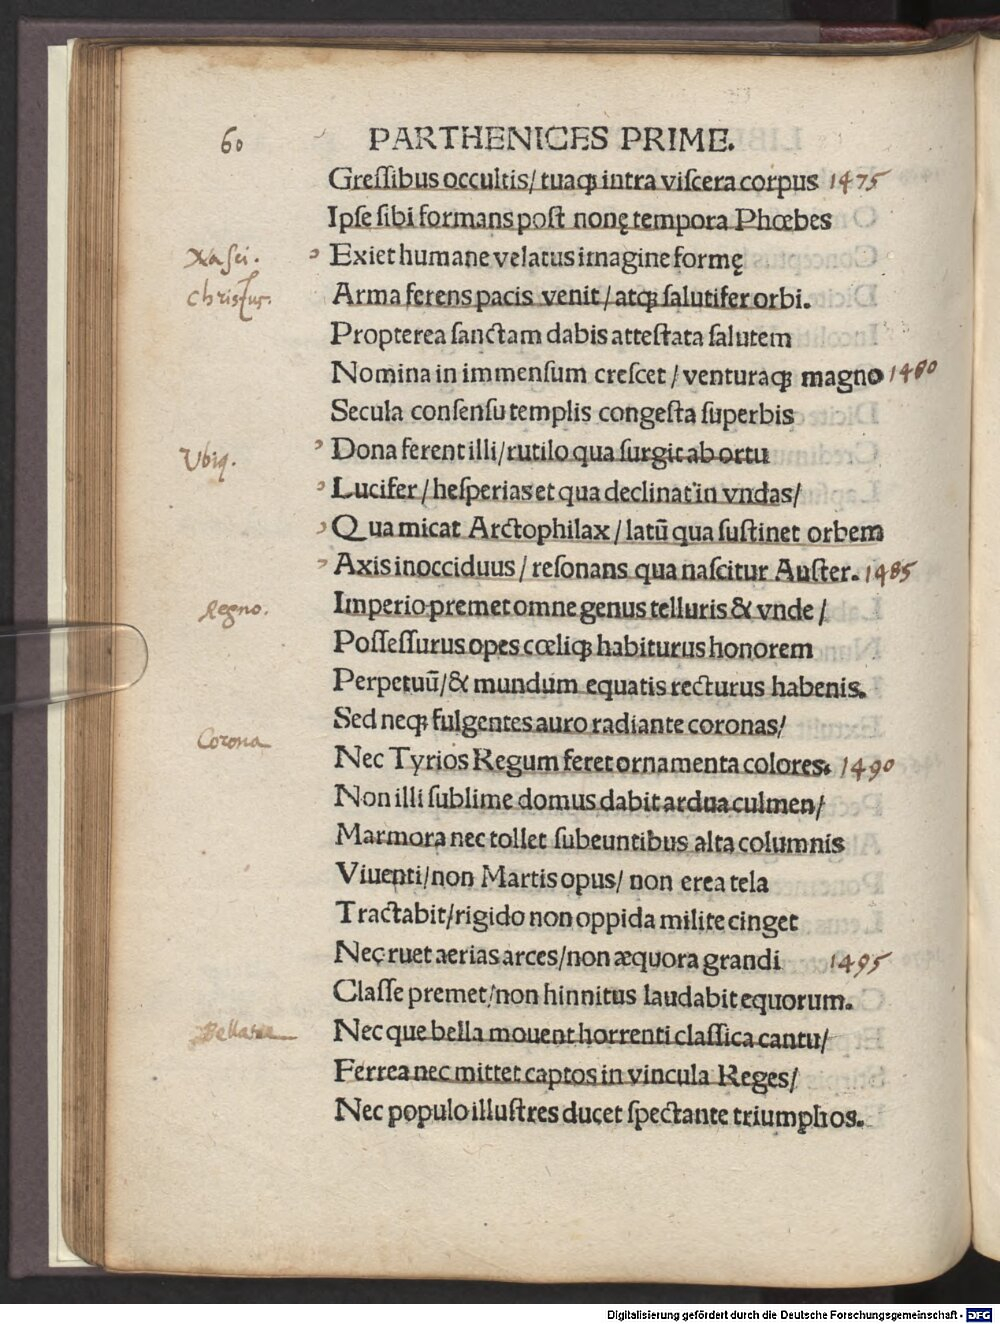 60 PARTHENICES PRIME.
Greſſibus occultis/ tuaqꝫ intra viſcera corpus 1475
Ipſe ſibi formans poſt nonę tempora Phœbes
Naſci. Exiet humane velatus imagine formę
Chriſtus. Arma ferens pacis venit/ atqꝫ ſalutifer orbi.
Propterea ſanctam dabis atteſtata ſalutem
Nomina in immenſum creſcet/ venturaqꝫ magno 1480
Secula conſenſu templis congeſta ſuperbis
Ubiq. Dona ferent illi/ rutilo qua ſurgit ab ortu
Lucifer/ heſperias et qua declinat in vndas/
Qua micat Arctophilax/ latū qua ſuſtinet orbem
Axis inocciduus/ reſonans qua naſcitur Auſter. 1485
Regno. Imperio premet omne genus telluris & vnde/
Poſſeſſurus opes cœliqꝫ habiturus honorem
Perpetuū/ & mundum equatis recturus habenis.
Sed neqꝫ fulgentes auro radiante coronas/
Corona Nec Tyrios Regum feret ornamenta colores: 1490
Non illi ſublime domus dabit ardua culmen/
Marmora nec tollet ſubeuntibus alta columnis
Viuenti/ non Martis opus/ non erea tela
Tractabit/ rigido non oppida milite cinget
Nec ruet aerias arces/ non æquora grandi 1495
Claſſe premet/ non hinnitus laudabit equorum.
Nec que bella mouent horrenti claſſica cantu/
Ferrea nec mittet captos in vincula Reges/
Nec populo illuſtres ducet ſpectante triumphos.
Digitalisierung gefördert durch die Deutsche Forschungsgemeinschaft - DFG